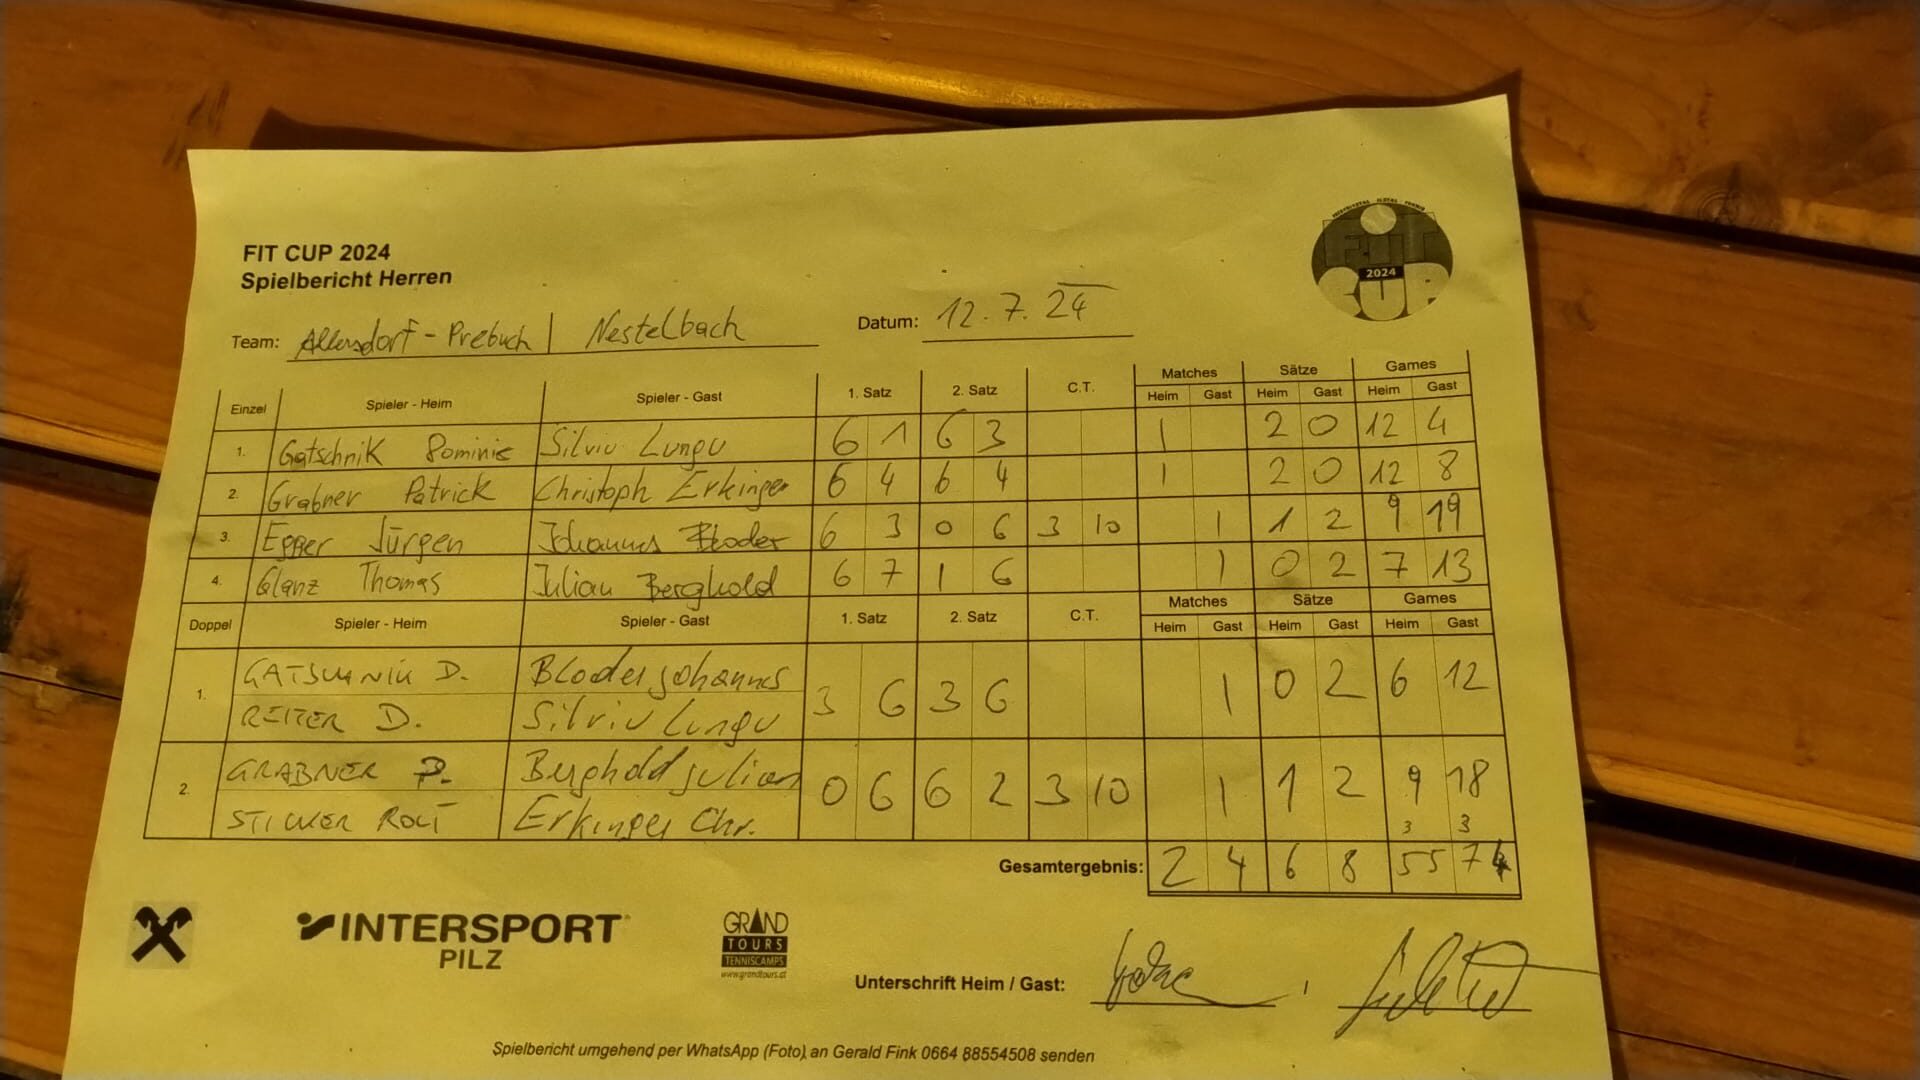 FIT CUP 2024
Spielbericht Herren
2024
Team: Allersdorf - Prebuch | Nestelbach Datum: 12.7.24
Matches Sätze Games
Einzel Spieler - Heim Spieler - Gast 1. Satz 2. Satz C.T. Heim Gast Heim Gast Heim Gast
1. Gatschnik Dominic Silviu Lungu 6 1 6 3 1 2 0 12 4
2. Grabner Patrick Christoph Erkinger 6 4 6 4 1 2 0 12 8
3. Egger Jürgen Johannes Bloder 6 3 0 6 3 10 1 1 2 9 19
4. Glanz Thomas Julian Berghold 6 7 1 6 1 0 2 7 13
Matches Sätze Games
Doppel Spieler - Heim Spieler - Gast 1. Satz 2. Satz C.T. Heim Gast Heim Gast Heim Gast
1. GATSCHNIK D. Bloder Johannes 3 6 3 6 1 0 2 6 12
REITER D. Silviu Lungu
2. GRABNER P. Berghold Julian 0 6 6 2 3 10 1 1 2 9 18
Erkinger Chr. 3 3
Gesamtergebnis: 2 4 6 8 55 74
INTERSPORT
PILZ
GRAND
TOURS
TENNISCAMPS
www.grandtours.at
Unterschrift Heim / Gast:
Spielbericht umgehend per WhatsApp (Foto) an Gerald Fink 0664 88554508 senden